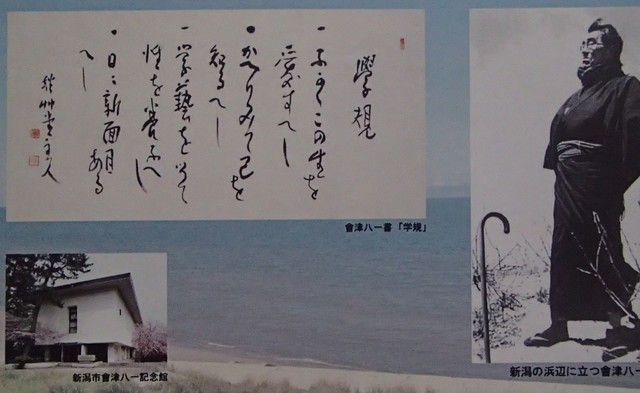 學規
一ふかくこの生を
愛すへし
一かへりみて己を
知るへし
一学藝を以て
性を養ふへし
一日々新面目ある
へし
秋艸堂主人
會津八一書「学規」
新潟市會津八一記念館
新潟の浜辺に立つ會津八一